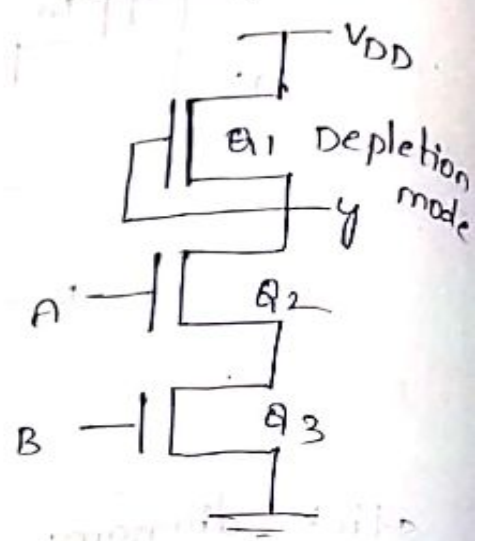 VDD
Q1 Depletion
mode
y
A
Q2
B
Q3